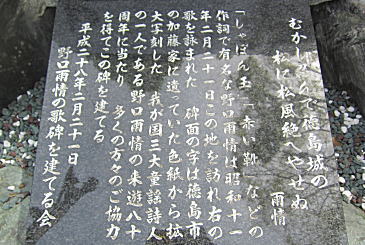 むかししのんで徳島城の
松に松風絶へやせぬ
雨情
「しゃぼん玉」「赤い靴」などの
作詞で有名な野口雨情は昭和十一
年二月二十一日この地を訪れ右の
歌を詠まれた 碑面の字は徳島市
の加藤家に遺っていた色紙から拡
大写刻した 我が国三大童謡詩人
の一人である野口雨情の来遊八十
周年に当たり 多くの方々のご協力
を得てこの碑を建てる
平成二十八年二月二十一日
野口雨情の歌碑を建てる会